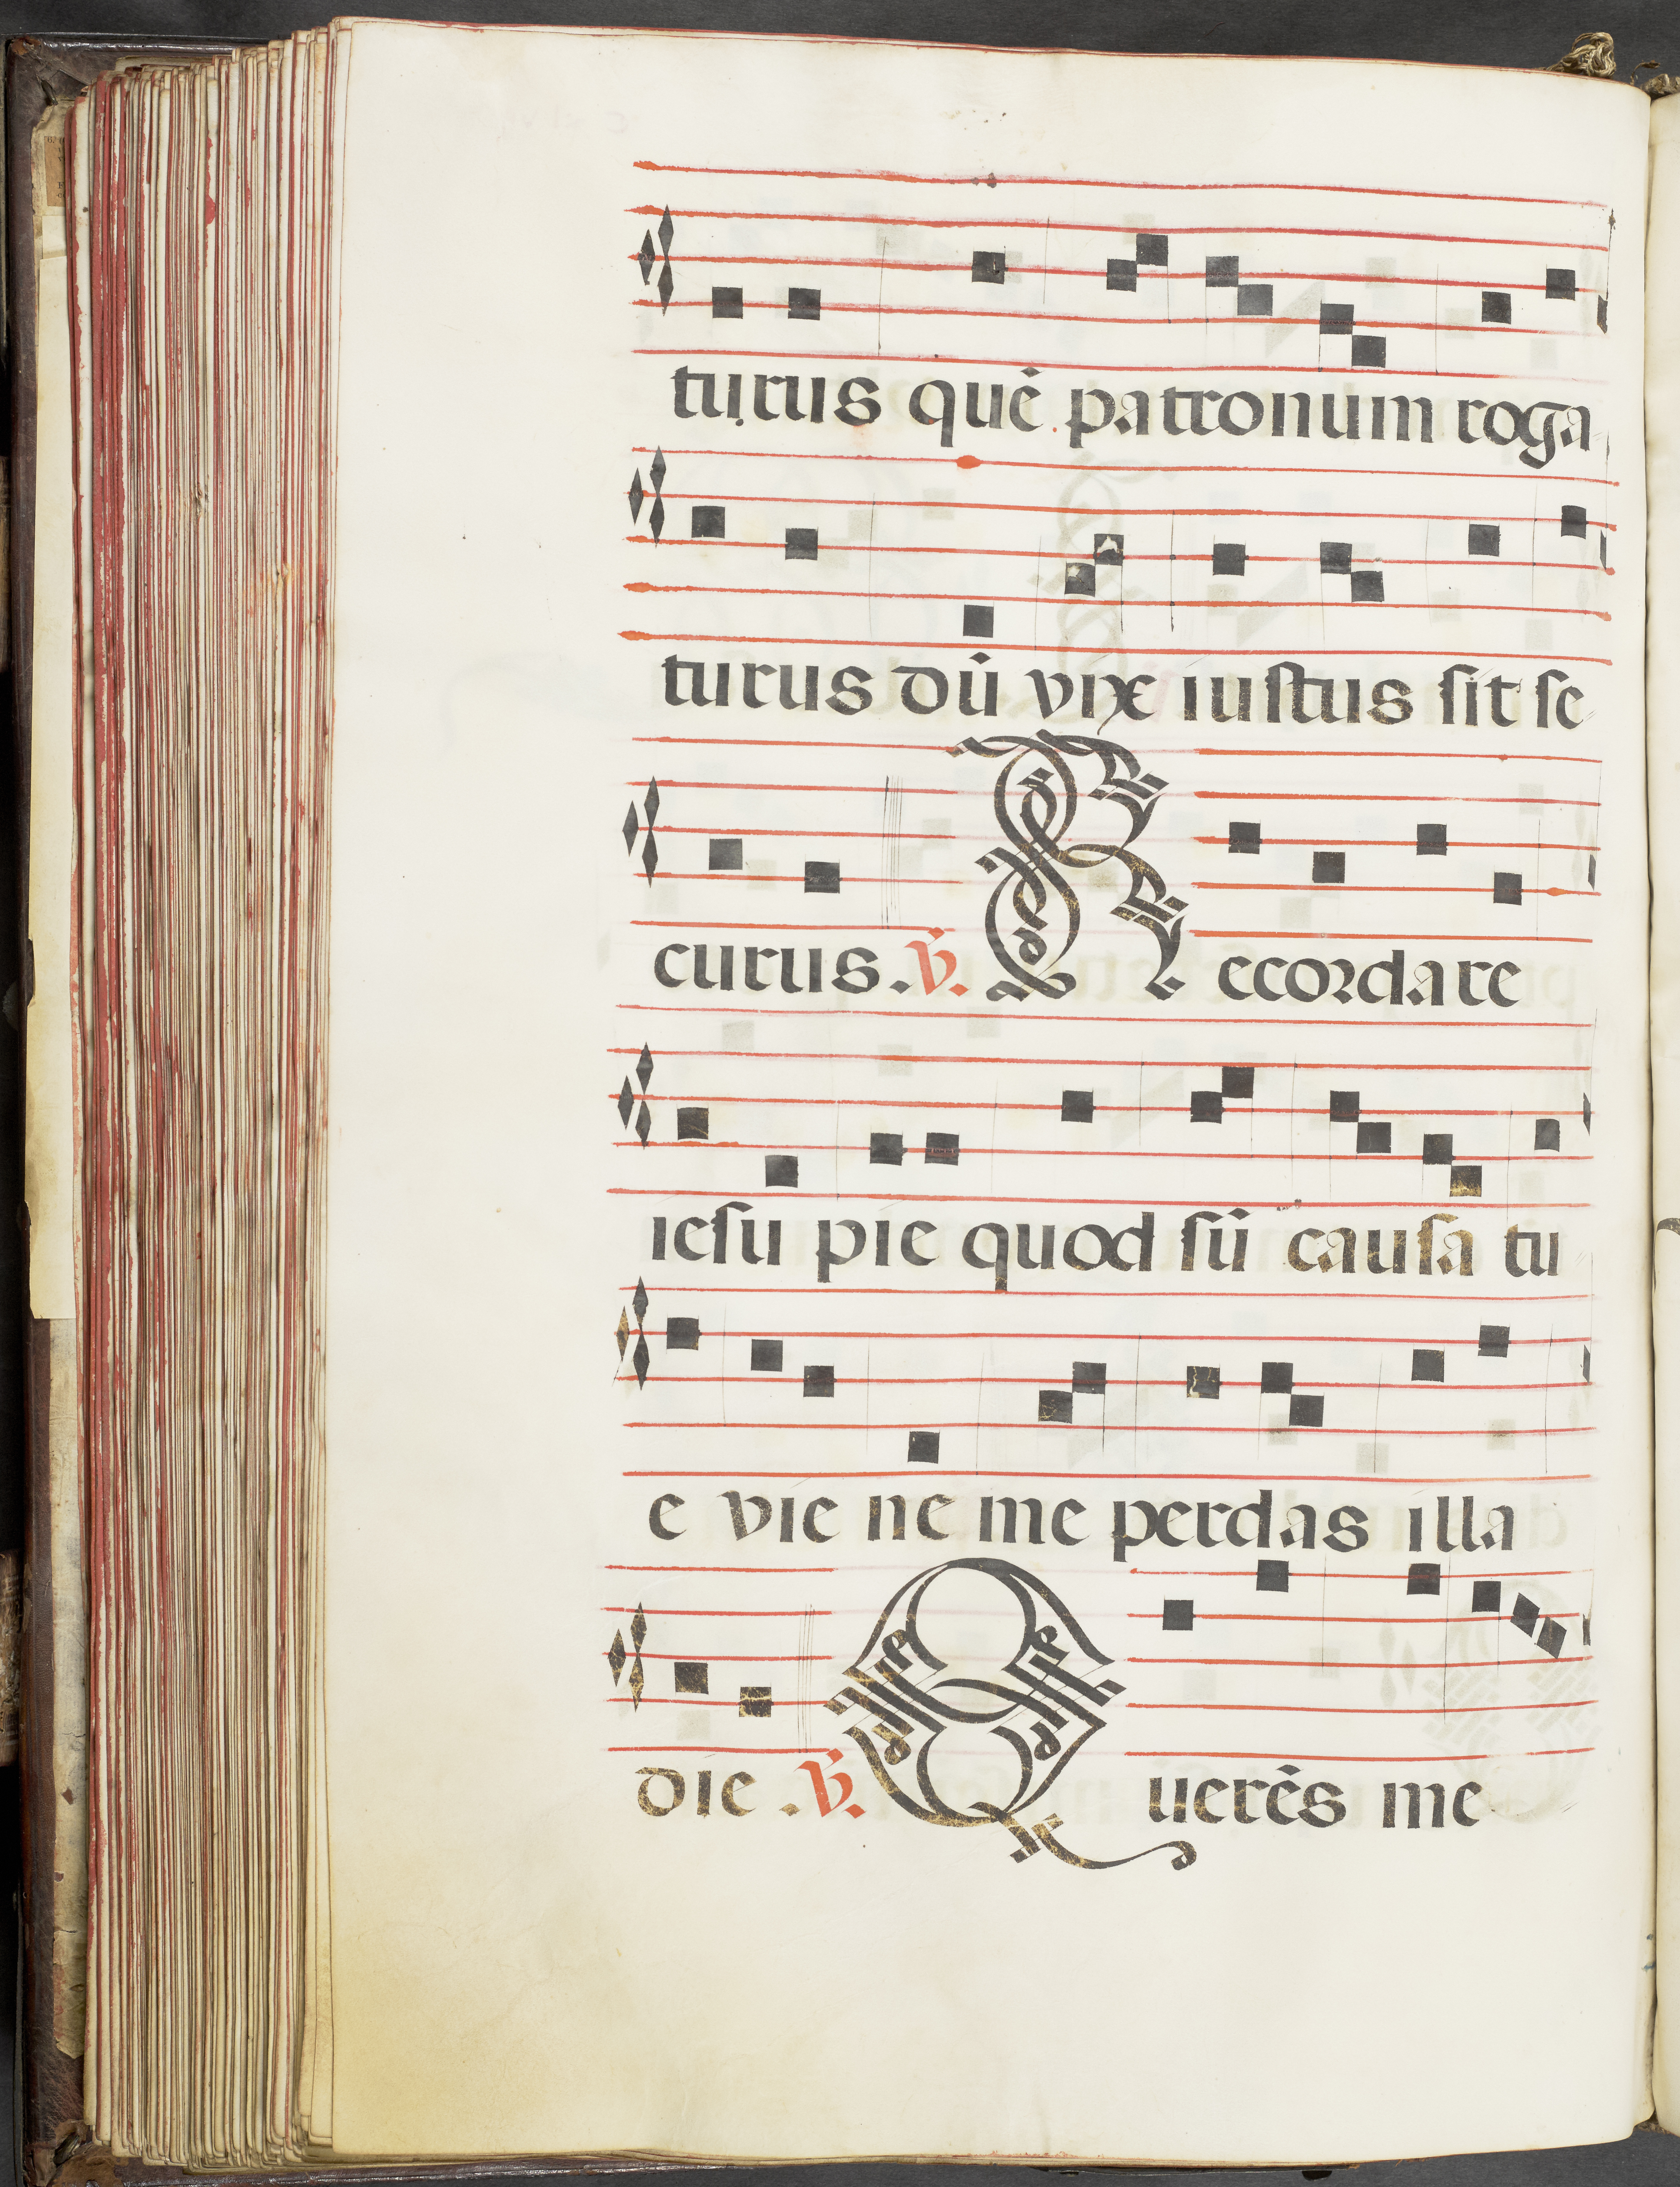 turus quē patronum roga
turus dū vix iustus sit se
curus. ℣. Recordare
iesu pie quod sū causa tu
e vie ne me perdas illa
die. ℣. Querēs me